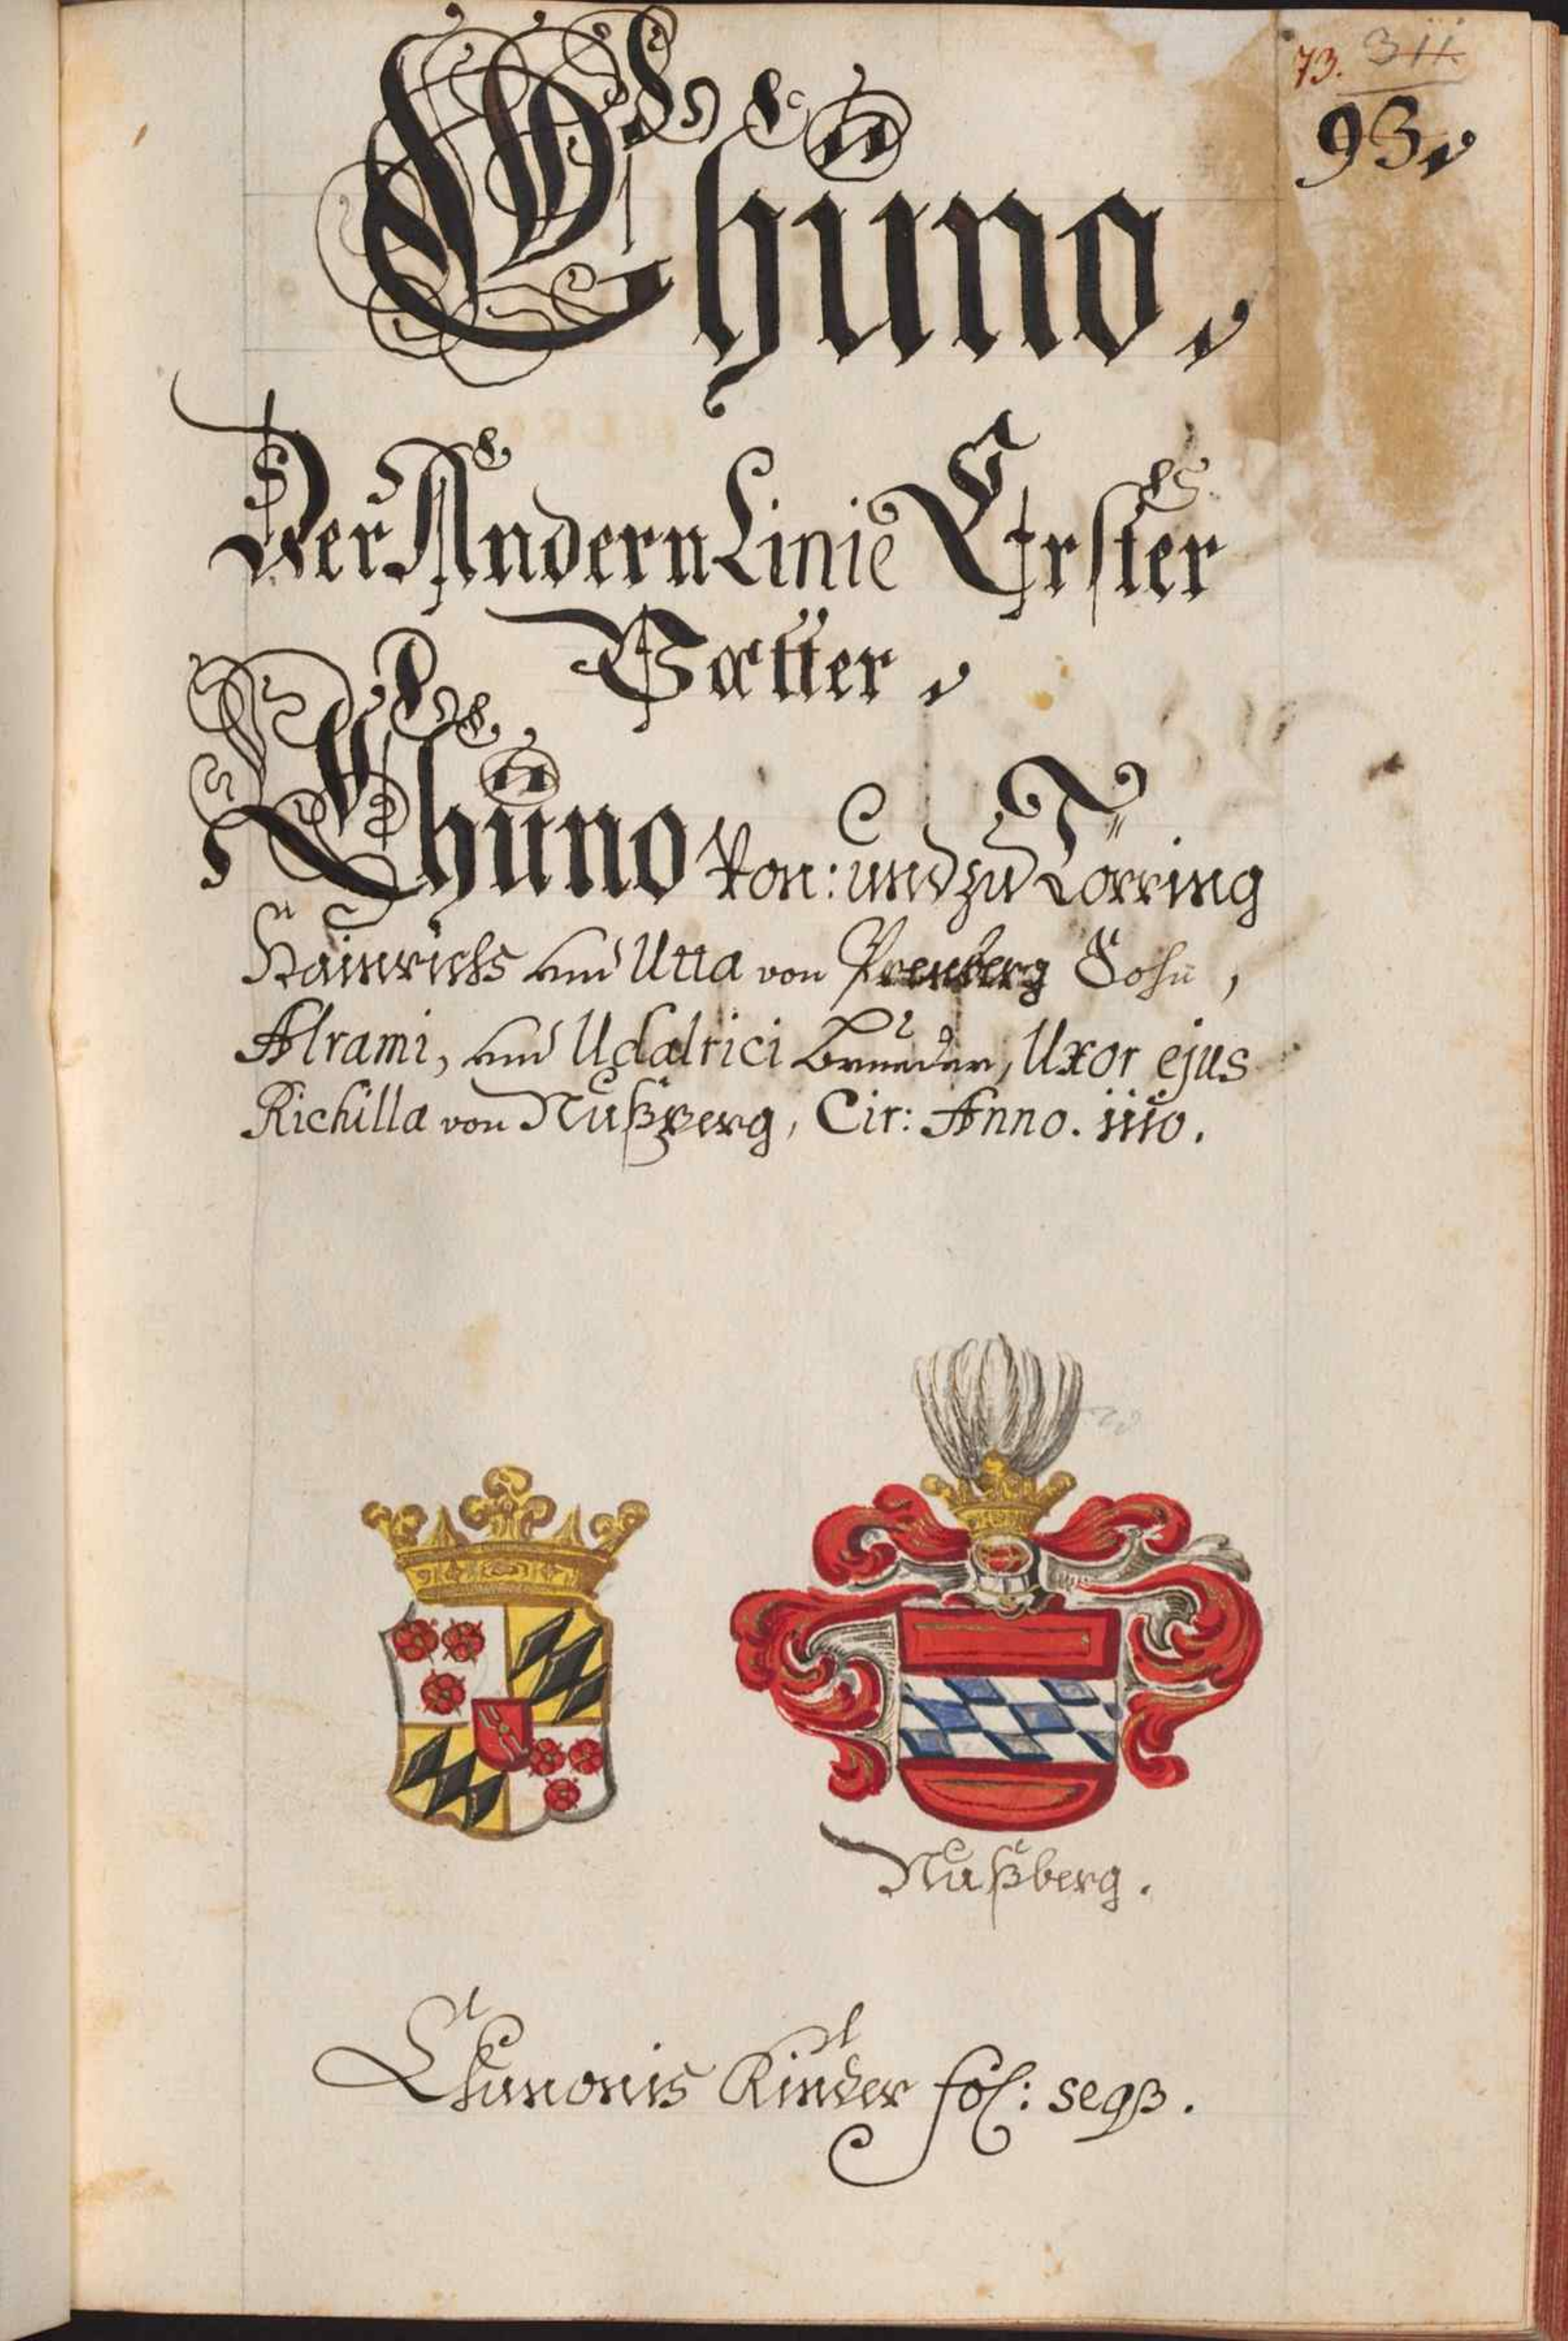 73. 311
93,
Chüno,
Der Andern Linie Erster
Vatter,
Chüno von: und zu Törring
Hainrichs und Utta von Prenberg Sohn,
Alrami, und Udalrici Brueder, Uxor ejus
Richilla von Nußberg, Cir: Anno. 1110.
Nußberg.
Chunonis Kinder fol: seqß.